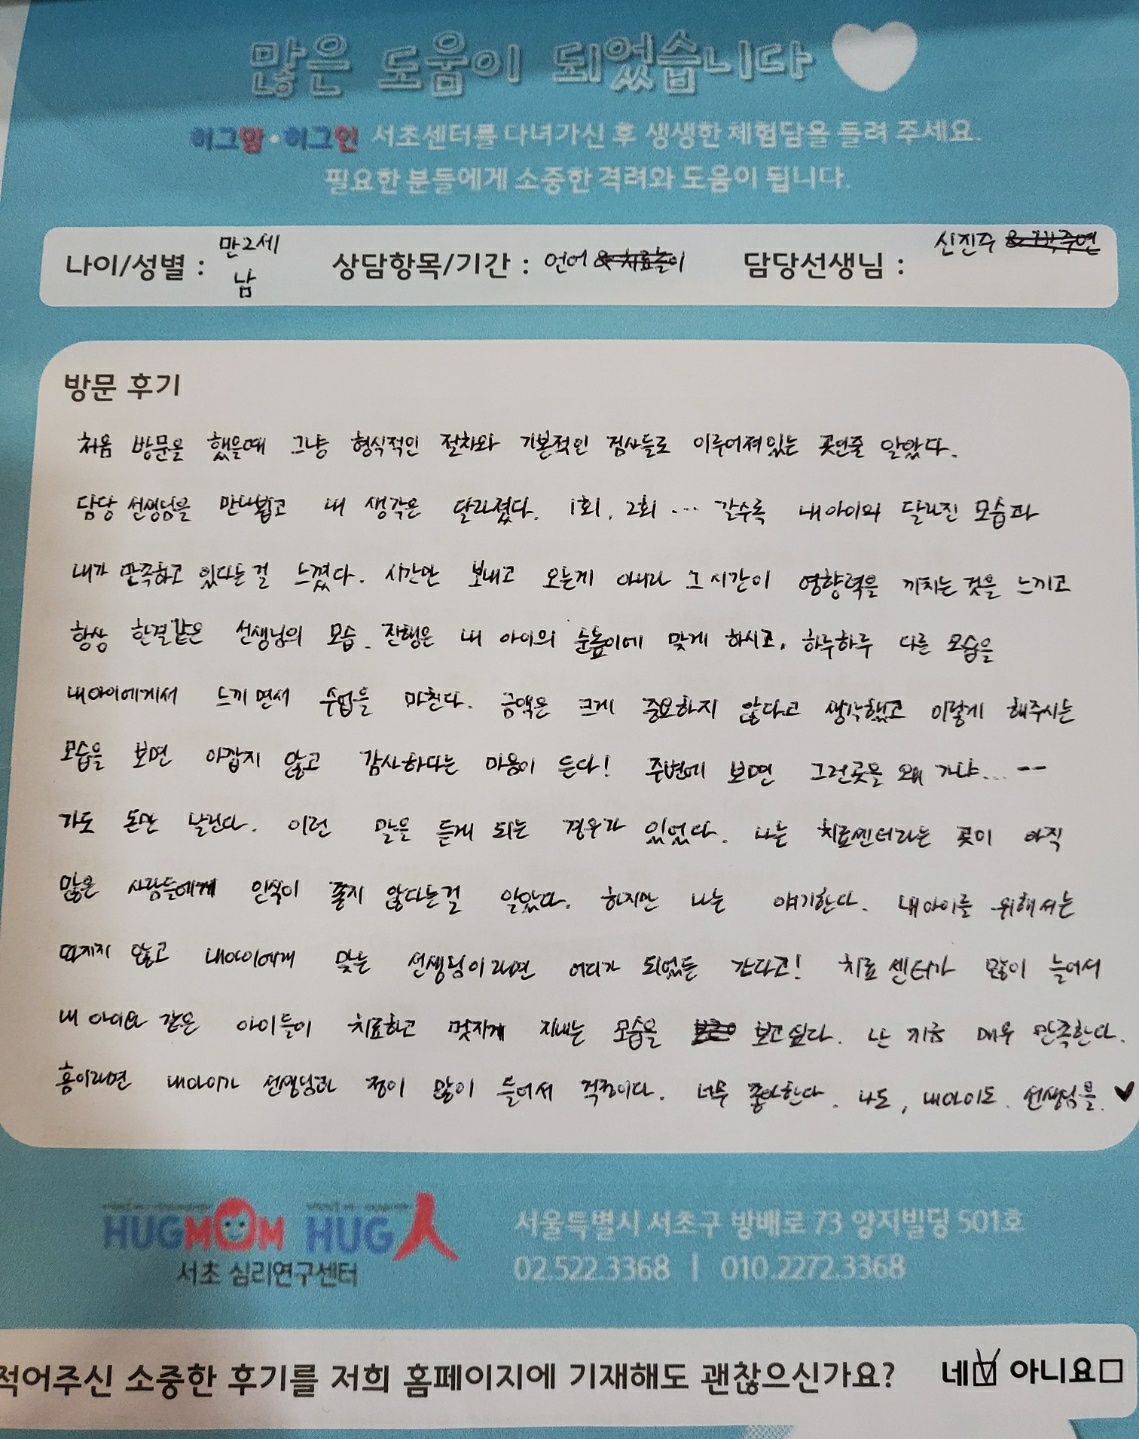 많은 도움이 되었습니다
허그맘•허그인 서초센터를 다녀가신 후 생생한 체험담을 들려 주세요.
필요한 분들에게 소중한 격려와 도움이 됩니다.
나이/성별 : 만2세 남 상담항목/기간 : 언어 & 치료놀이 담당선생님 : 신진주
방문 후기
처음 방문을 했을때 그냥 형식적인 절차와 기본적인 검사들로 이루어져있는 곳인줄 알았다.
담당 선생님을 만나뵙고 내 생각은 달라졌다. 1회, 2회 ... 갈수록 내아이의 달라진 모습과
내가 만족하고 있다는걸 느꼈다. 시간만 보내고 오는게 아니라 그 시간이 영향력을 끼치는 것을 느끼고
항상 한결같은 선생님의 모습. 진행은 내 아이의 눈높이에 맞게 하시고, 하루하루 다른 모습을
내아이에게서 느끼면서 수업을 마친다. 금액은 크게 중요하지 않다고 생각했고 이렇게 해주시는
모습을 보면 아깝지 않고 감사하다는 마음이 든다! 주변에 보면 그런곳을 왜 가냐... --
가도 돈만 날린다. 이런 말을 듣게 되는 경우가 있었다. 나는 치료센터라는 곳이 아직
많은 사람들에게 인식이 좋지 않다는걸 알았다. 하지만 나는 얘기한다. 내아이를 위해서는
따지지 않고 내아이에게 맞는 선생님이라면 어디가 되었든 간다고! 치료센터가 많이 늘어서
내 아이와 같은 아이들이 치료하고 멋지게 지내는 모습을 보고싶다. 난 지금 매우 만족한다.
흠이라면 내아이가 선생님과 정이 많이 들어서 걱정이다. 너무 좋아한다. 나도, 내아이도. 선생님을. ♥
HUGMOM HUG人
서초 심리연구센터
서울특별시 서초구 방배로 73 양지빌딩 501호
02.522.3368 | 010.2272.3368
적어주신 소중한 후기를 저희 홈페이지에 기재해도 괜찮으신가요? 네☑ 아니요□